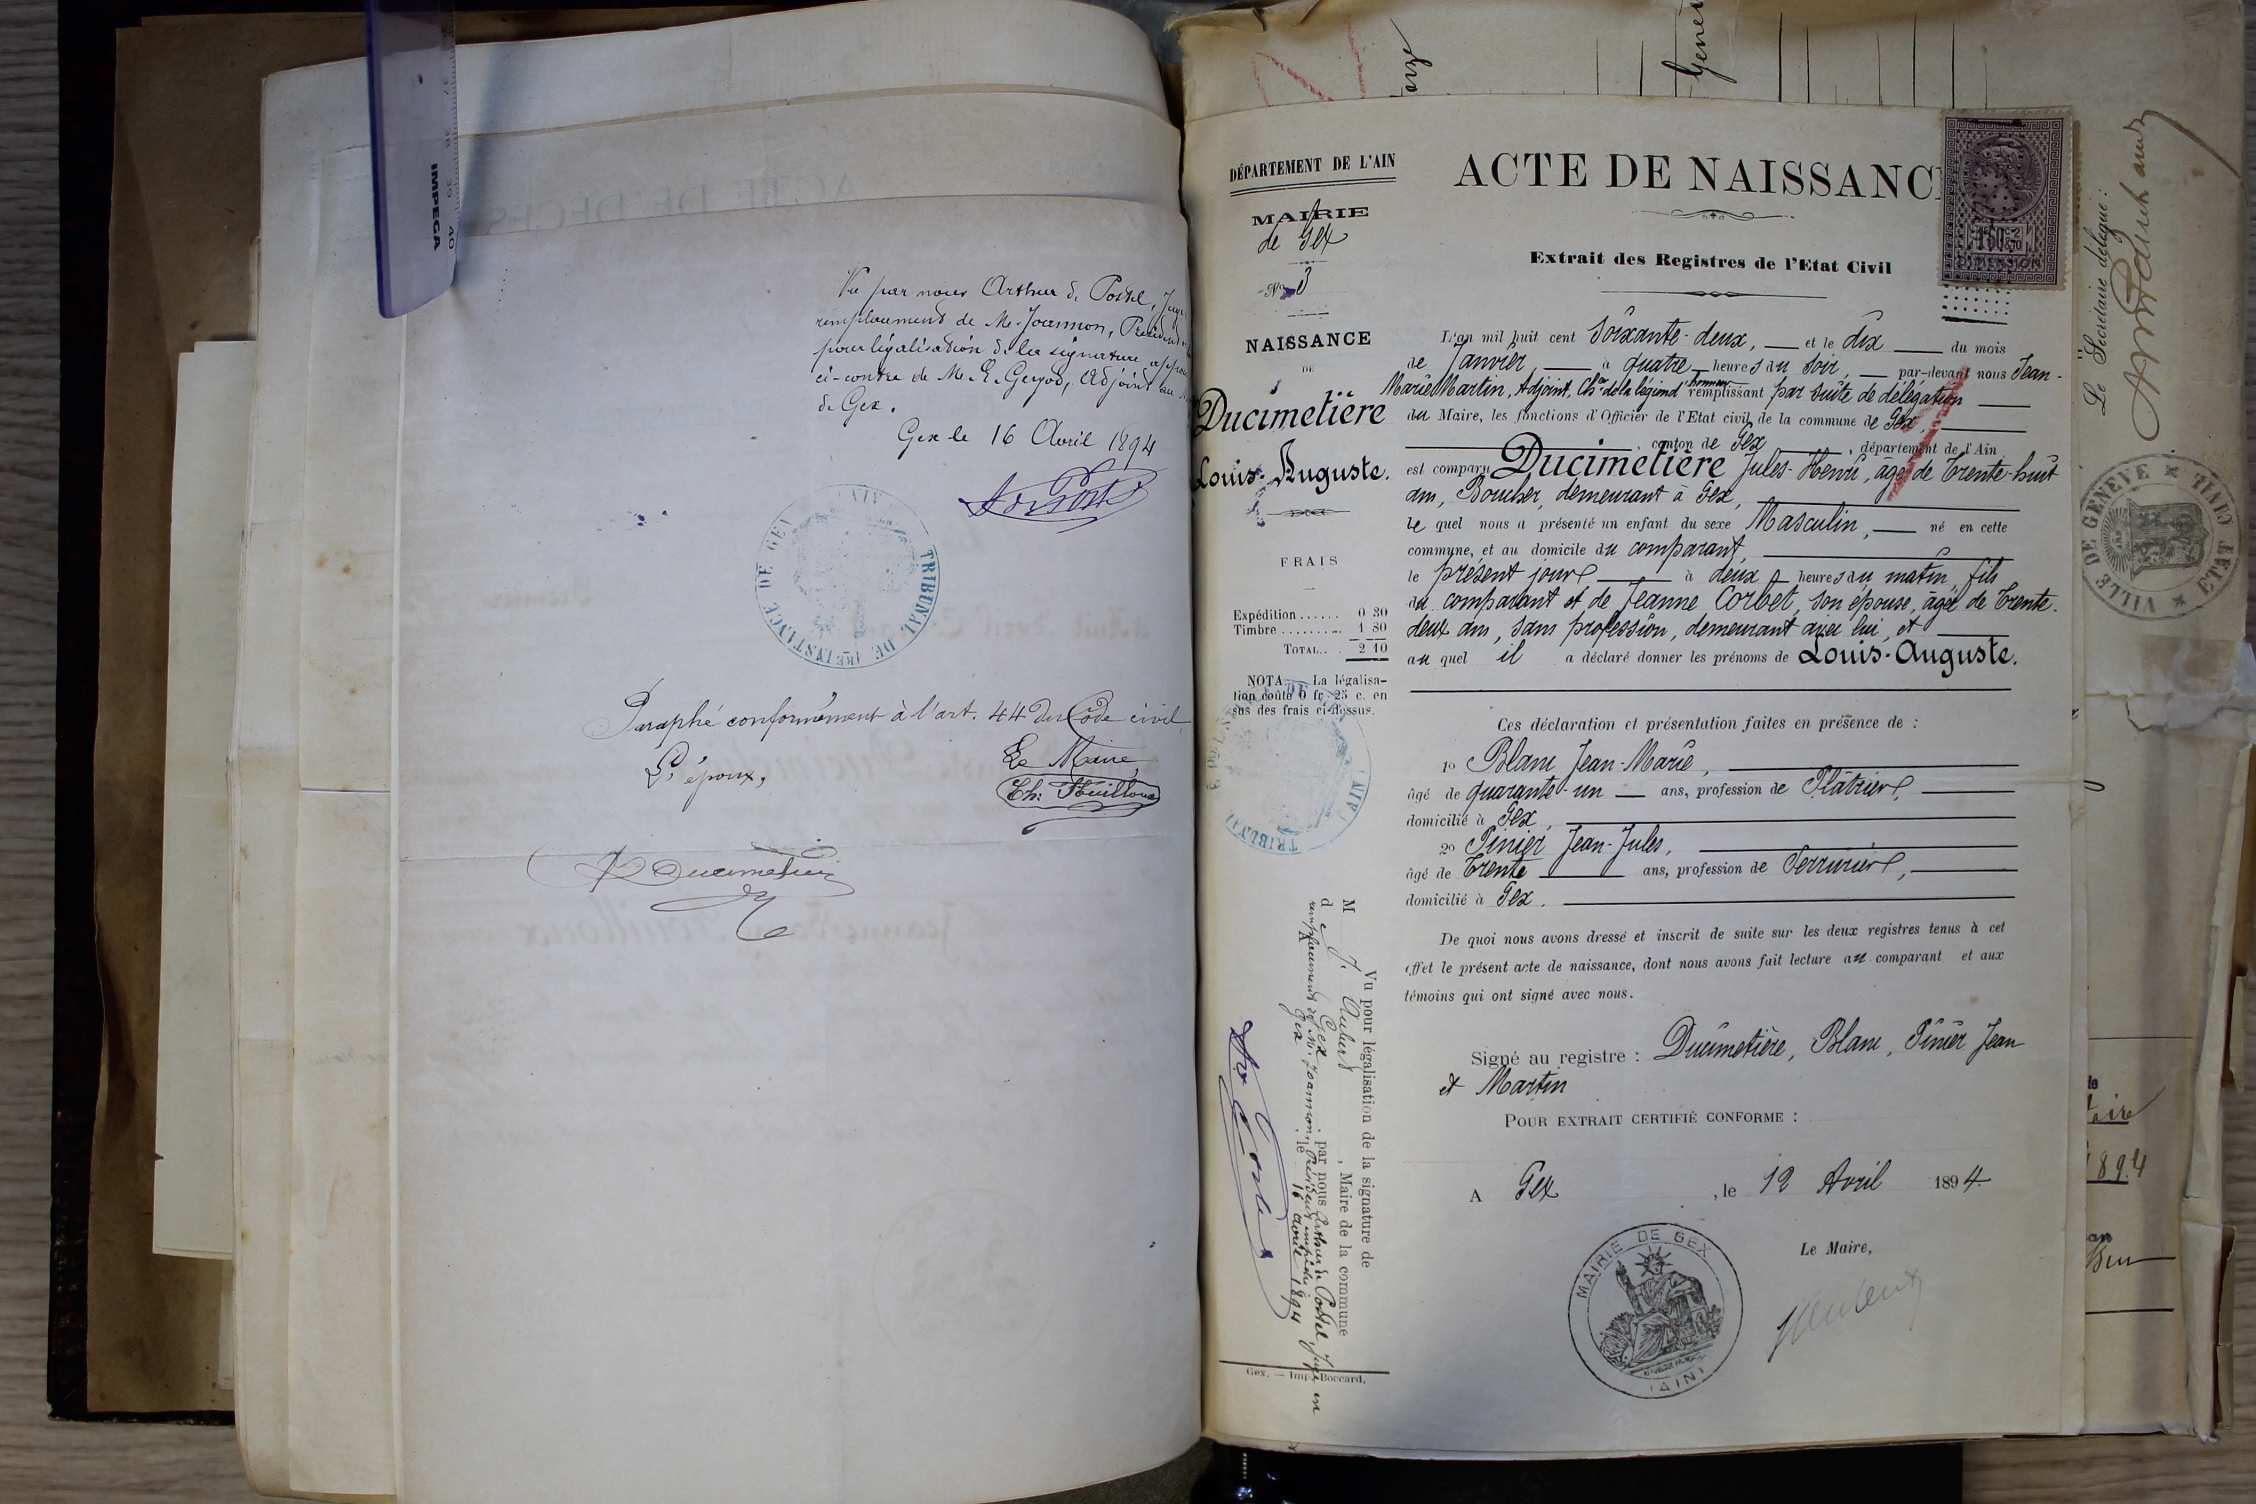 Vu par nous Arthur de Postel, Juge
remplacement de M. Joannon, Président
pour légalisation de la signature apposée
ci-contre de M. E. Gerod, Adjoint au
de Gex.
Gex le 16 Avril 1894
TRIBUNAL DE 1RE INSTANCE DE GEX (AIN)
Paraphé conformément à l'art. 44 du Code civil,
L'époux,
Le Maire,
Ducimetière
IMPEGA
DÉPARTEMENT DE L'AIN
MAIRIE
de Gex
No 3
NAISSANCE
DE
Ducimetière
Louis-Auguste.
FRAIS
Expédition...... 0 30
Timbre ......... 1 80
TOTAL... 2 10
NOTA. — La légalisa-
tion coûte 0 fr. 25 c. en
sus des frais ci-dessus.
Vu pour légalisation de la signature de
M J. Aubert, Maire de la commune
de Gex par nous Arthur de Postel Juge en
remplacement de M. Joannon, Président empêché
A Gex, le 16 avril 1894
Gex. — Imp. Boccard.
ACTE DE NAISSANC
Extrait des Registres de l'Etat Civil
L'an mil huit cent soixante-deux, et le dix du mois
de Janvier à quatre heures du soir, par-devant nous Jean-
Marie Martin, Adjoint, Cher de la légion d'honneur remplissant par suite de délégation
du Maire, les fonctions d'Officier de l'Etat civil de la commune de Gex,
canton de Gex, département de l'Ain
est comparu Ducimetière Jules-Henri, âgé de trente-huit
ans, Boucher, demeurant à Gex,
le quel nous a présenté un enfant du sexe Masculin, né en cette
commune, et au domicile du comparant,
le présent jour à deux heures du matin, fils
du comparant et de Jeanne Corbet, son épouse, âgée de trente-
deux ans, sans profession, demeurant avec lui, et
au quel il a déclaré donner les prénoms de Louis-Auguste.
Ces déclaration et présentation faites en présence de :
1o Blanc Jean-Marie,
âgé de quarante-un ans, profession de Plâtrier,
domicilié à Gex,
2o Pinier Jean-Jules,
âgé de trente ans, profession de Serrurier,
domicilié à Gex.
De quoi nous avons dressé et inscrit de suite sur les deux registres tenus à cet
effet le présent acte de naissance, dont nous avons fait lecture au comparant et aux
témoins qui ont signé avec nous.
Signé au registre : Ducimetière, Blanc, Pinier Jean
et Martin
POUR EXTRAIT CERTIFIÉ CONFORME :
A Gex, le 12 Avril 1894
Le Maire,
MAIRIE DE GEX
(AIN)
Le Secrétaire délégué :
VILLE DE GENEVE
ETAT CIVIL